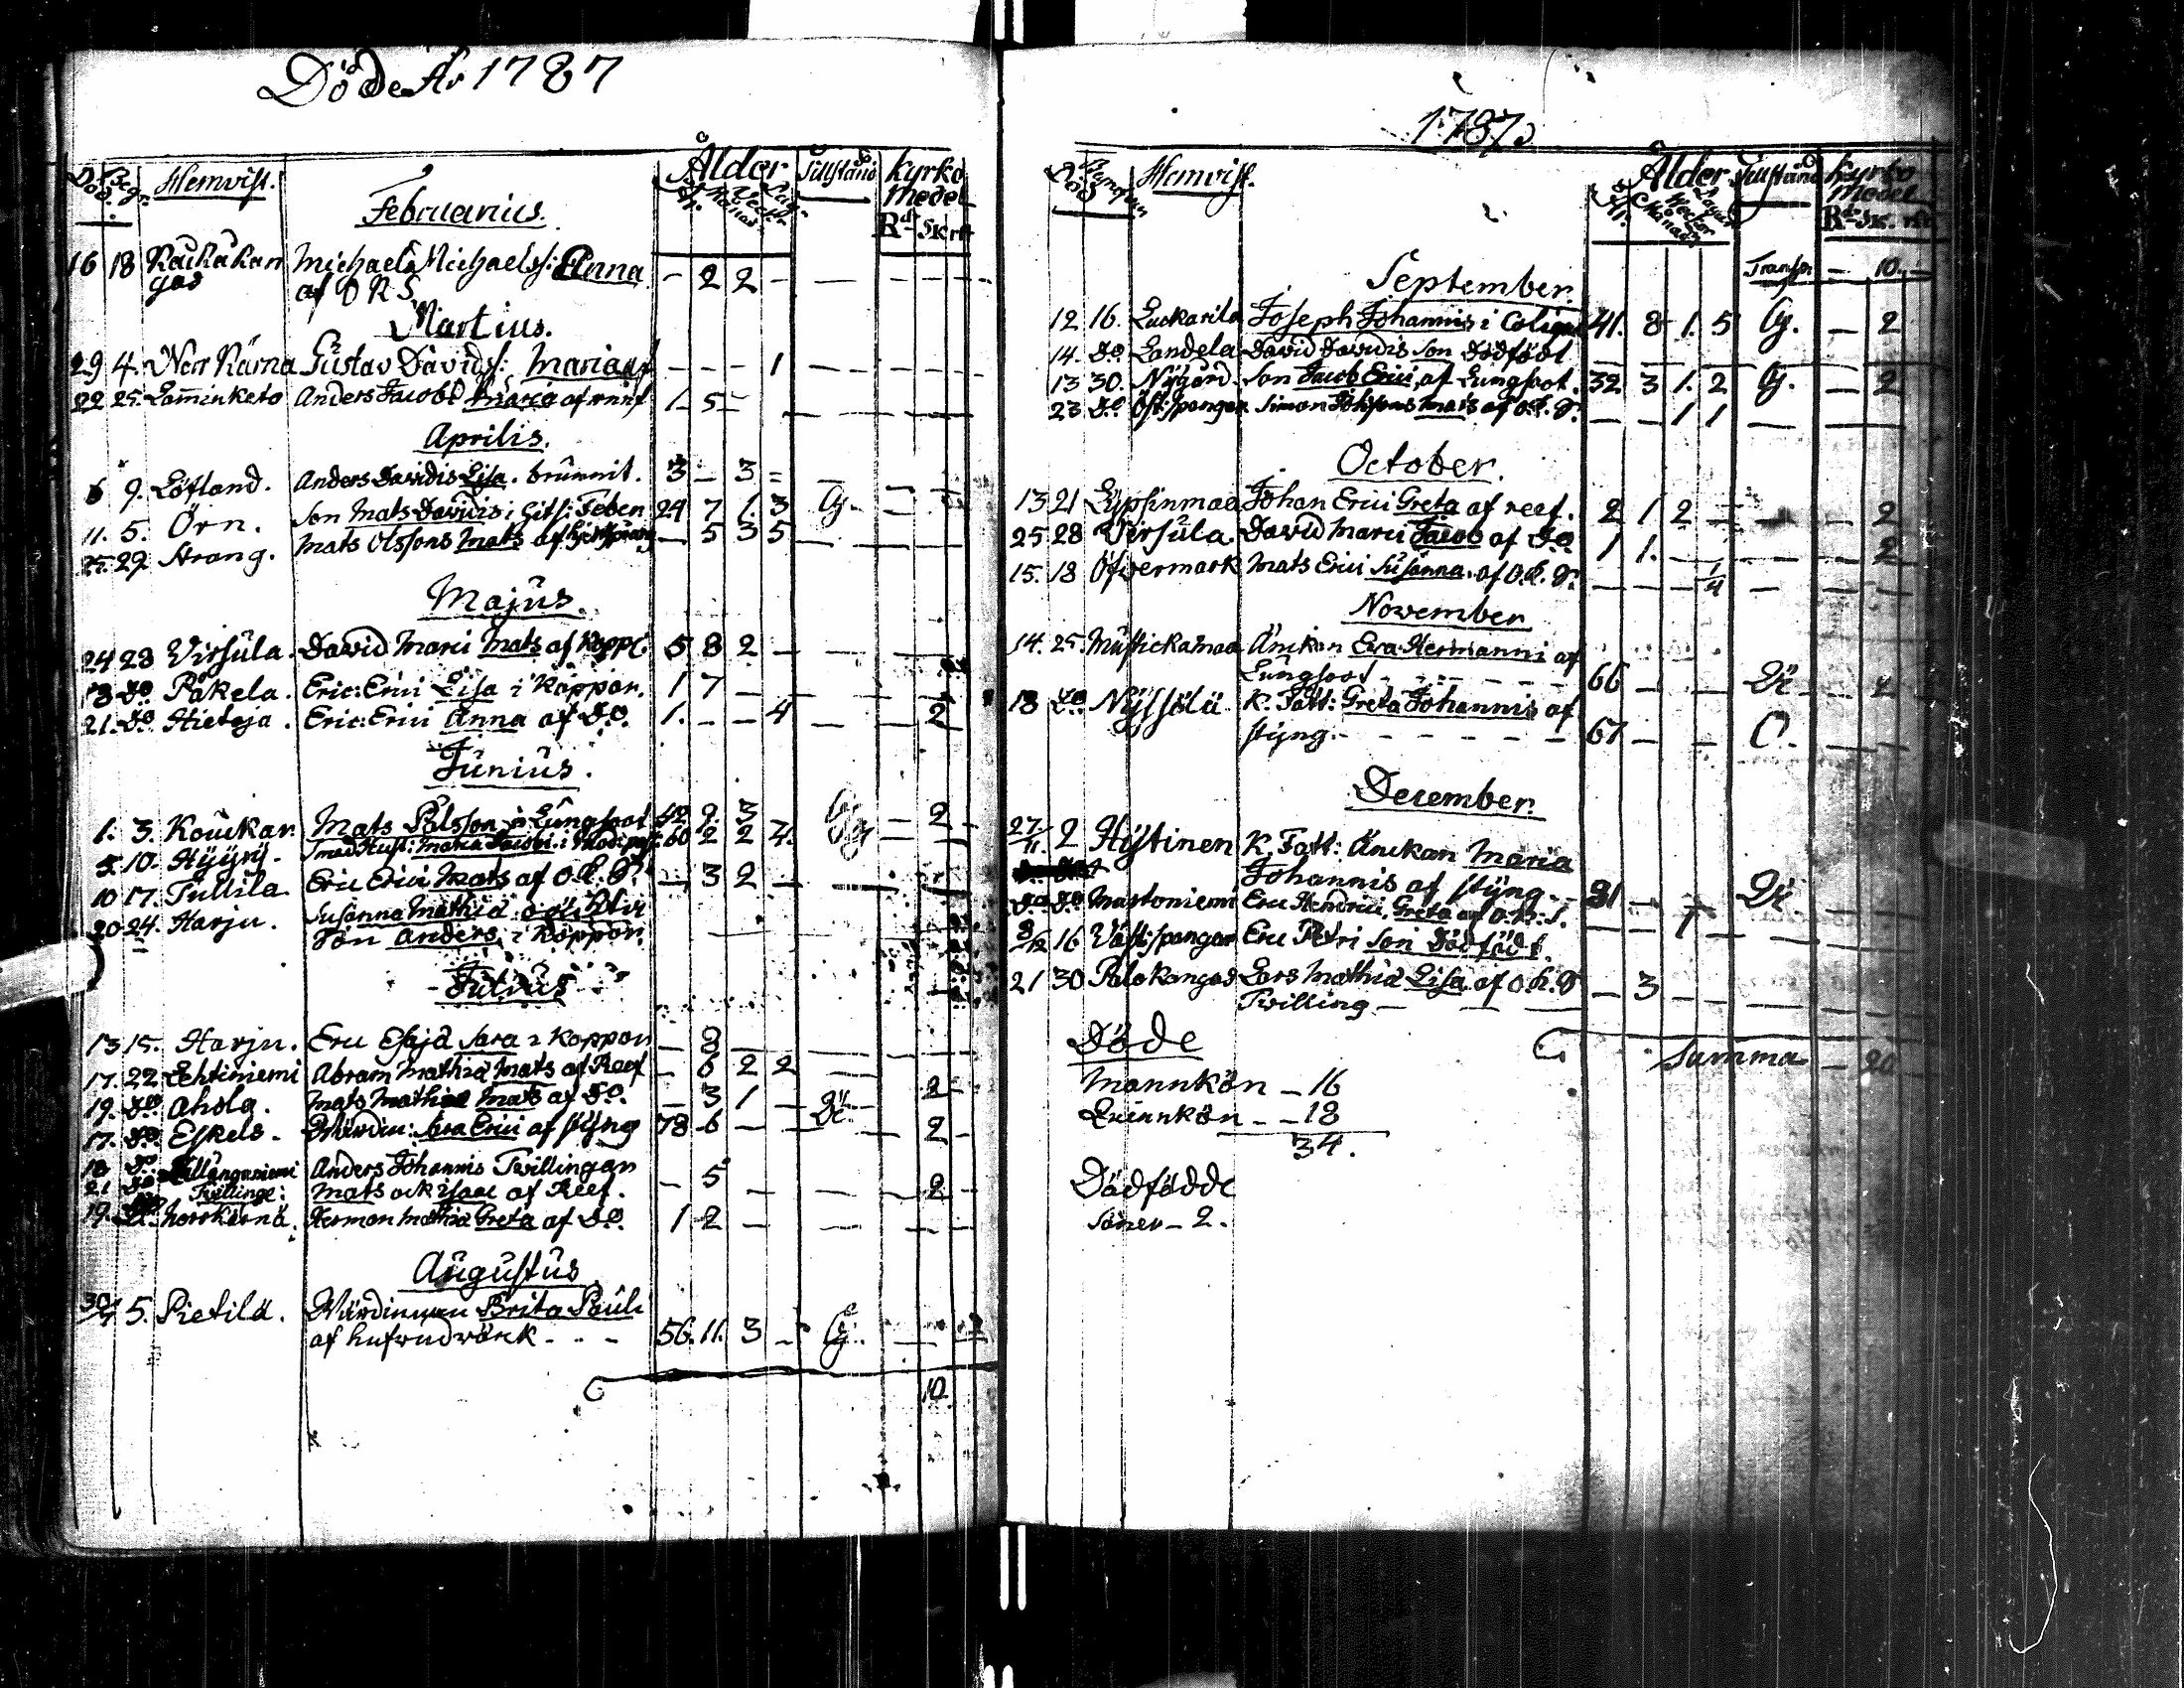 Döde År 1787
Död. Begr. Hemvist. Ålder Tillstånd Kyrko Medel
År. Månad. Veckor Dagar. Rd. Sk. rst
Februarius.
16 18 Raukakan Michaels Michaelss: Anna — 2 2 — — — — —
gas af O K S
Martius.
29 4. Nerr Kärna Gustav Davids: Maria af — — — 1
22 25. Lamminketo Anders Jacobi Maria af rnnf 1 5 —
Aprilis.
6 9. Löfland. Anders Davidis Lisa. brünnit. 3 — 3 =
11. 5. Örn. Son Mats Davidis i Hits: Feben 24 7 1. 3 G.
25. 29 Strang. Mats Olssons Mats af — 5 3 5
Majus.
24 28 Virsula. David Marci Mats af Kopp: 5 8 2 —
13 Do Påkela. Eric: Erici Lisa i Koppor. 1 7 —
21. Do Hietoja. Eric: Erici Anna af Do. 1. — — 4 — — 2
Junius.
1. 3. Kouckar. Mats Pålsson i Lungsoot 42 9. 3 G — 2 —
5. 10. Hyyry. Smed Hust: Maria Jacobi i 60 2 2 4. G
10 17. Tullila Eric Erici Mats af O. K. S. — 3 2 —
20 24. Harju. Susanna Mathiæ
Son Anders i Koppor.
Julius
13 15. Harju. Eric Esajæ Sara i Koppor — 8
17. 22 Lehtiniemi Abram Mathiæ Mats af Reef — 6 2 2
19. Do Ahola. Mats Mathiæ Mats af Do. — 3 1 — — 2
17. Do Eskels. Wärdin: Sara Erici af styng 78 6 — — Di. — 2
18 Do Anders Johannis Twillingar
21 Do Twillinge: Mats ock Isaac af Reef. — 5 — — 2
19. Do Norrkärnä. Herman Mathiæ Greta af Do. 1 2 —
Augustus
30/7 5. Pietilä. Wärdinnan Brita Pauli
af hufvudvärk - - - 56. 11. 3 — G.
10
1787.
Död Begrafven Hemvist. Ålder Tillstånd Kyrko Medel
År. Månad Weckor Dagar Rd. Sk. rst
September. Transp. — 10. —
12 16. Luckarila Joseph Johannis i Colique 41. 8 1. 5 G. — 2
14. Do Landela David Davidis Son Dödfödt
13 30. Nygård. Son Jacob Erici af Lungsoot. 32 3 1. 2 G. — 2
23 Do Öst: spangar Simon Johssons Mats af o. k. S. — — 1 1 —
October.
13 21 Lypsinmaa Johan Erici Greta af reef. 2 1 2 — — — 2
25 28 Virsula David Marci Jacob af Do 1 1. — — — — 2
15. 18 Öfvermark Mats Erici Susanna. af O. k. S. — — — 1/4 — — —
November
14. 25. Mustickamaa Änckan Eva Hermanni af
Lungsoot - - - - - 66 — — Di — 2
18 Do Nyssölä K. Fatt: Greta Johannis af
styng. - - - - - 67 — — O. — —
December.
27/11. 2 Hystinen K. Fatt: Änckan Maria
Johannis af styng - 81 — — Di. —
Do Do Mastoniemi Eric Hendrici Greta af o. k. S. — — 1
8/12 16 Väst: spangar Eric Petri Son Dödfödt.
21 30 Palokangas Lars Mathiæ Lisa af o. k. S — 3 — —
Twilling — — —
Summa — 20
Döde
Mannkön — 16
Quinnkön — — 18
34.
Dödfödde
Söner — 2.